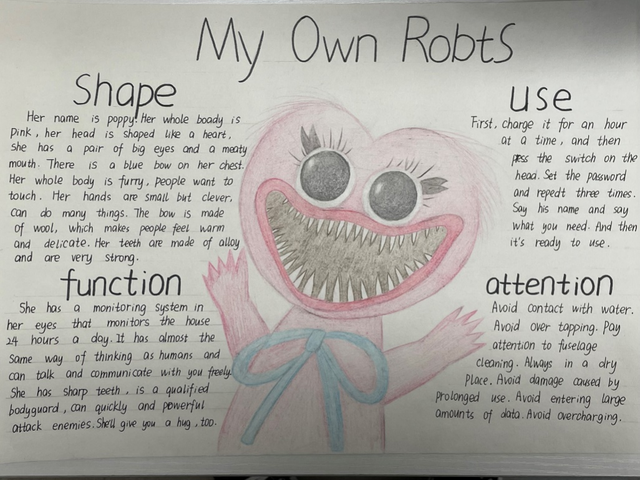 My Own Robts
Shape
Her name is poppy. Her whole boady is
Pink, her head is shaped like a heart,
she has a pair of big eyes and a meaty
mouth. There is a blue bow on her chest.
Her whole body is furry, people want to
touch. Her hands are small but clever,
can do many things. The bow is made
of wool, which makes people feel warm
and delicate. Her teeth are made of alloy
and are very strong.
function
She has a monitoring system in
her eyes that monitors the house
24 hours a day. It has almost the
same way of thinking as humans and
can talk and communicate with you freely.
She has sharp teeth, is a qualified
bodyguard, can quickly and powerful
attack enemies. She'll give you a hug, too.
use
First, charge it for an hour
at a time, and then
press the switch on the
head. Set the password
and repedt three times.
Say his name and say
what you need. And then
it's ready to use.
attention
Avoid contact with water.
Avoid over tapping. Pay
attention to fuselage
cleaning. Always in a dry
Place. Avoid damage caused by
prolonged use. Avoid entering large
amounts of data. Avoid overcharging.